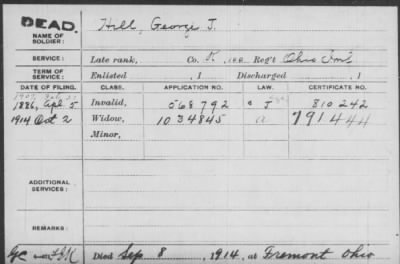 DEAD.
NAME OF SOLDIER:
Hill, George J.
SERVICE:
Late rank, Co. K, 100 Reg't Ohio Inf
TERM OF SERVICE:
Enlisted , 1 Discharged , 1
DATE OF FILING. CLASS. APPLICATION NO. LAW. CERTIFICATE NO.
1886, Apl 5 Invalid, 568792 J 810242
1914 Oct 2 Widow, 1034845 a 791444
Minor,
ADDITIONAL SERVICES:
REMARKS:
Died Sep 8, 1914, at Fremont Ohio